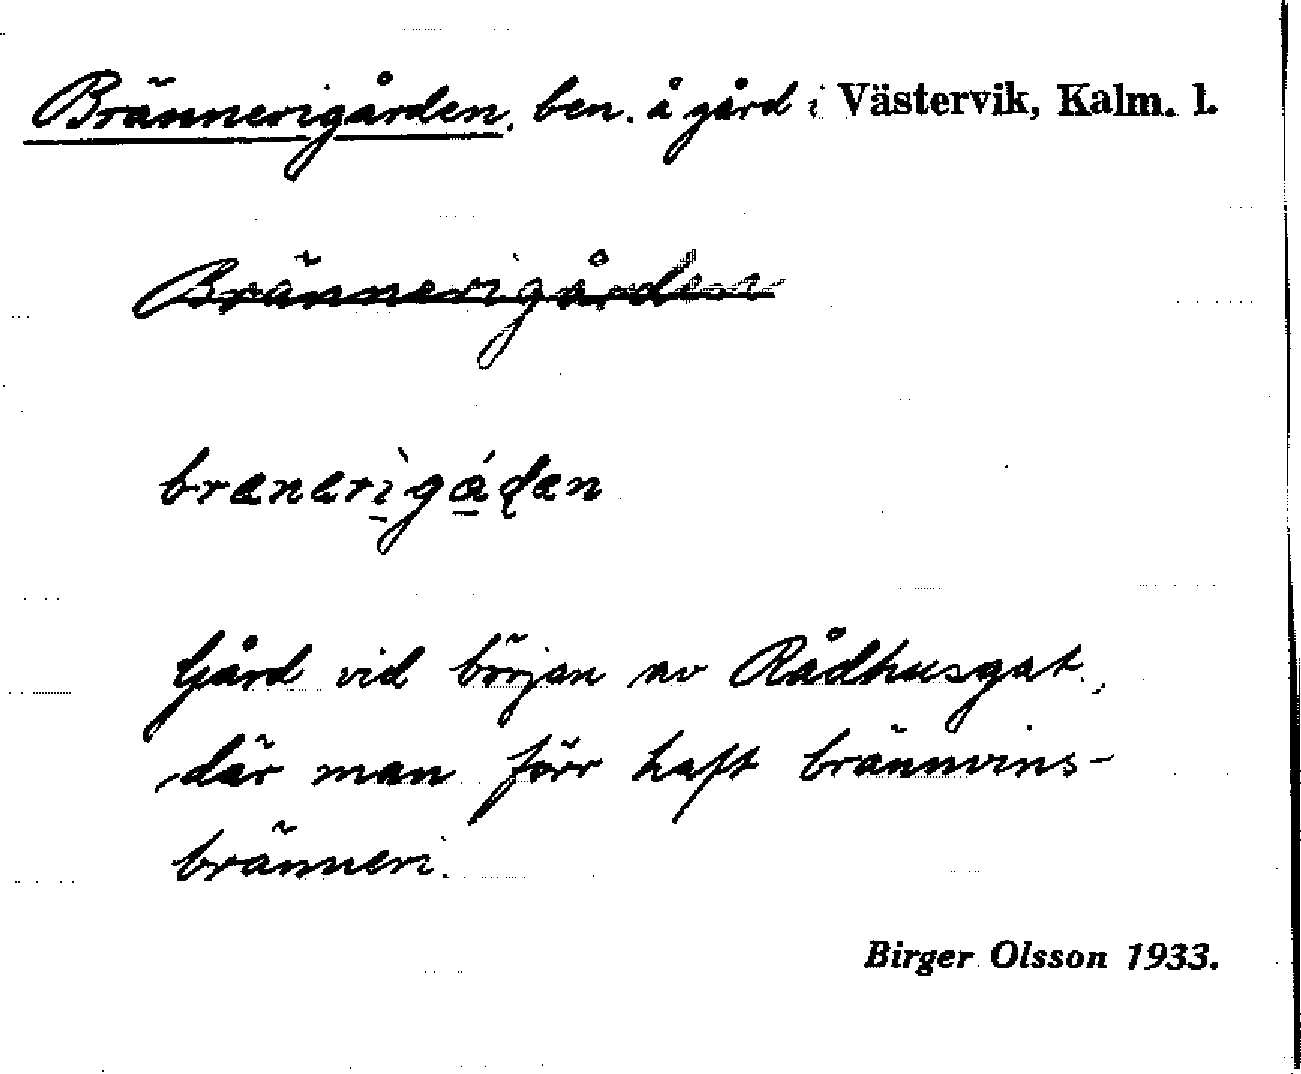 Brännerigården, ben. å gård i Västervik, Kalm. l.
Brännerigården
Gård vid början av Rådhusgat.,
där man förr haft brännvins-
bränneri.
Birger Olsson 1933.